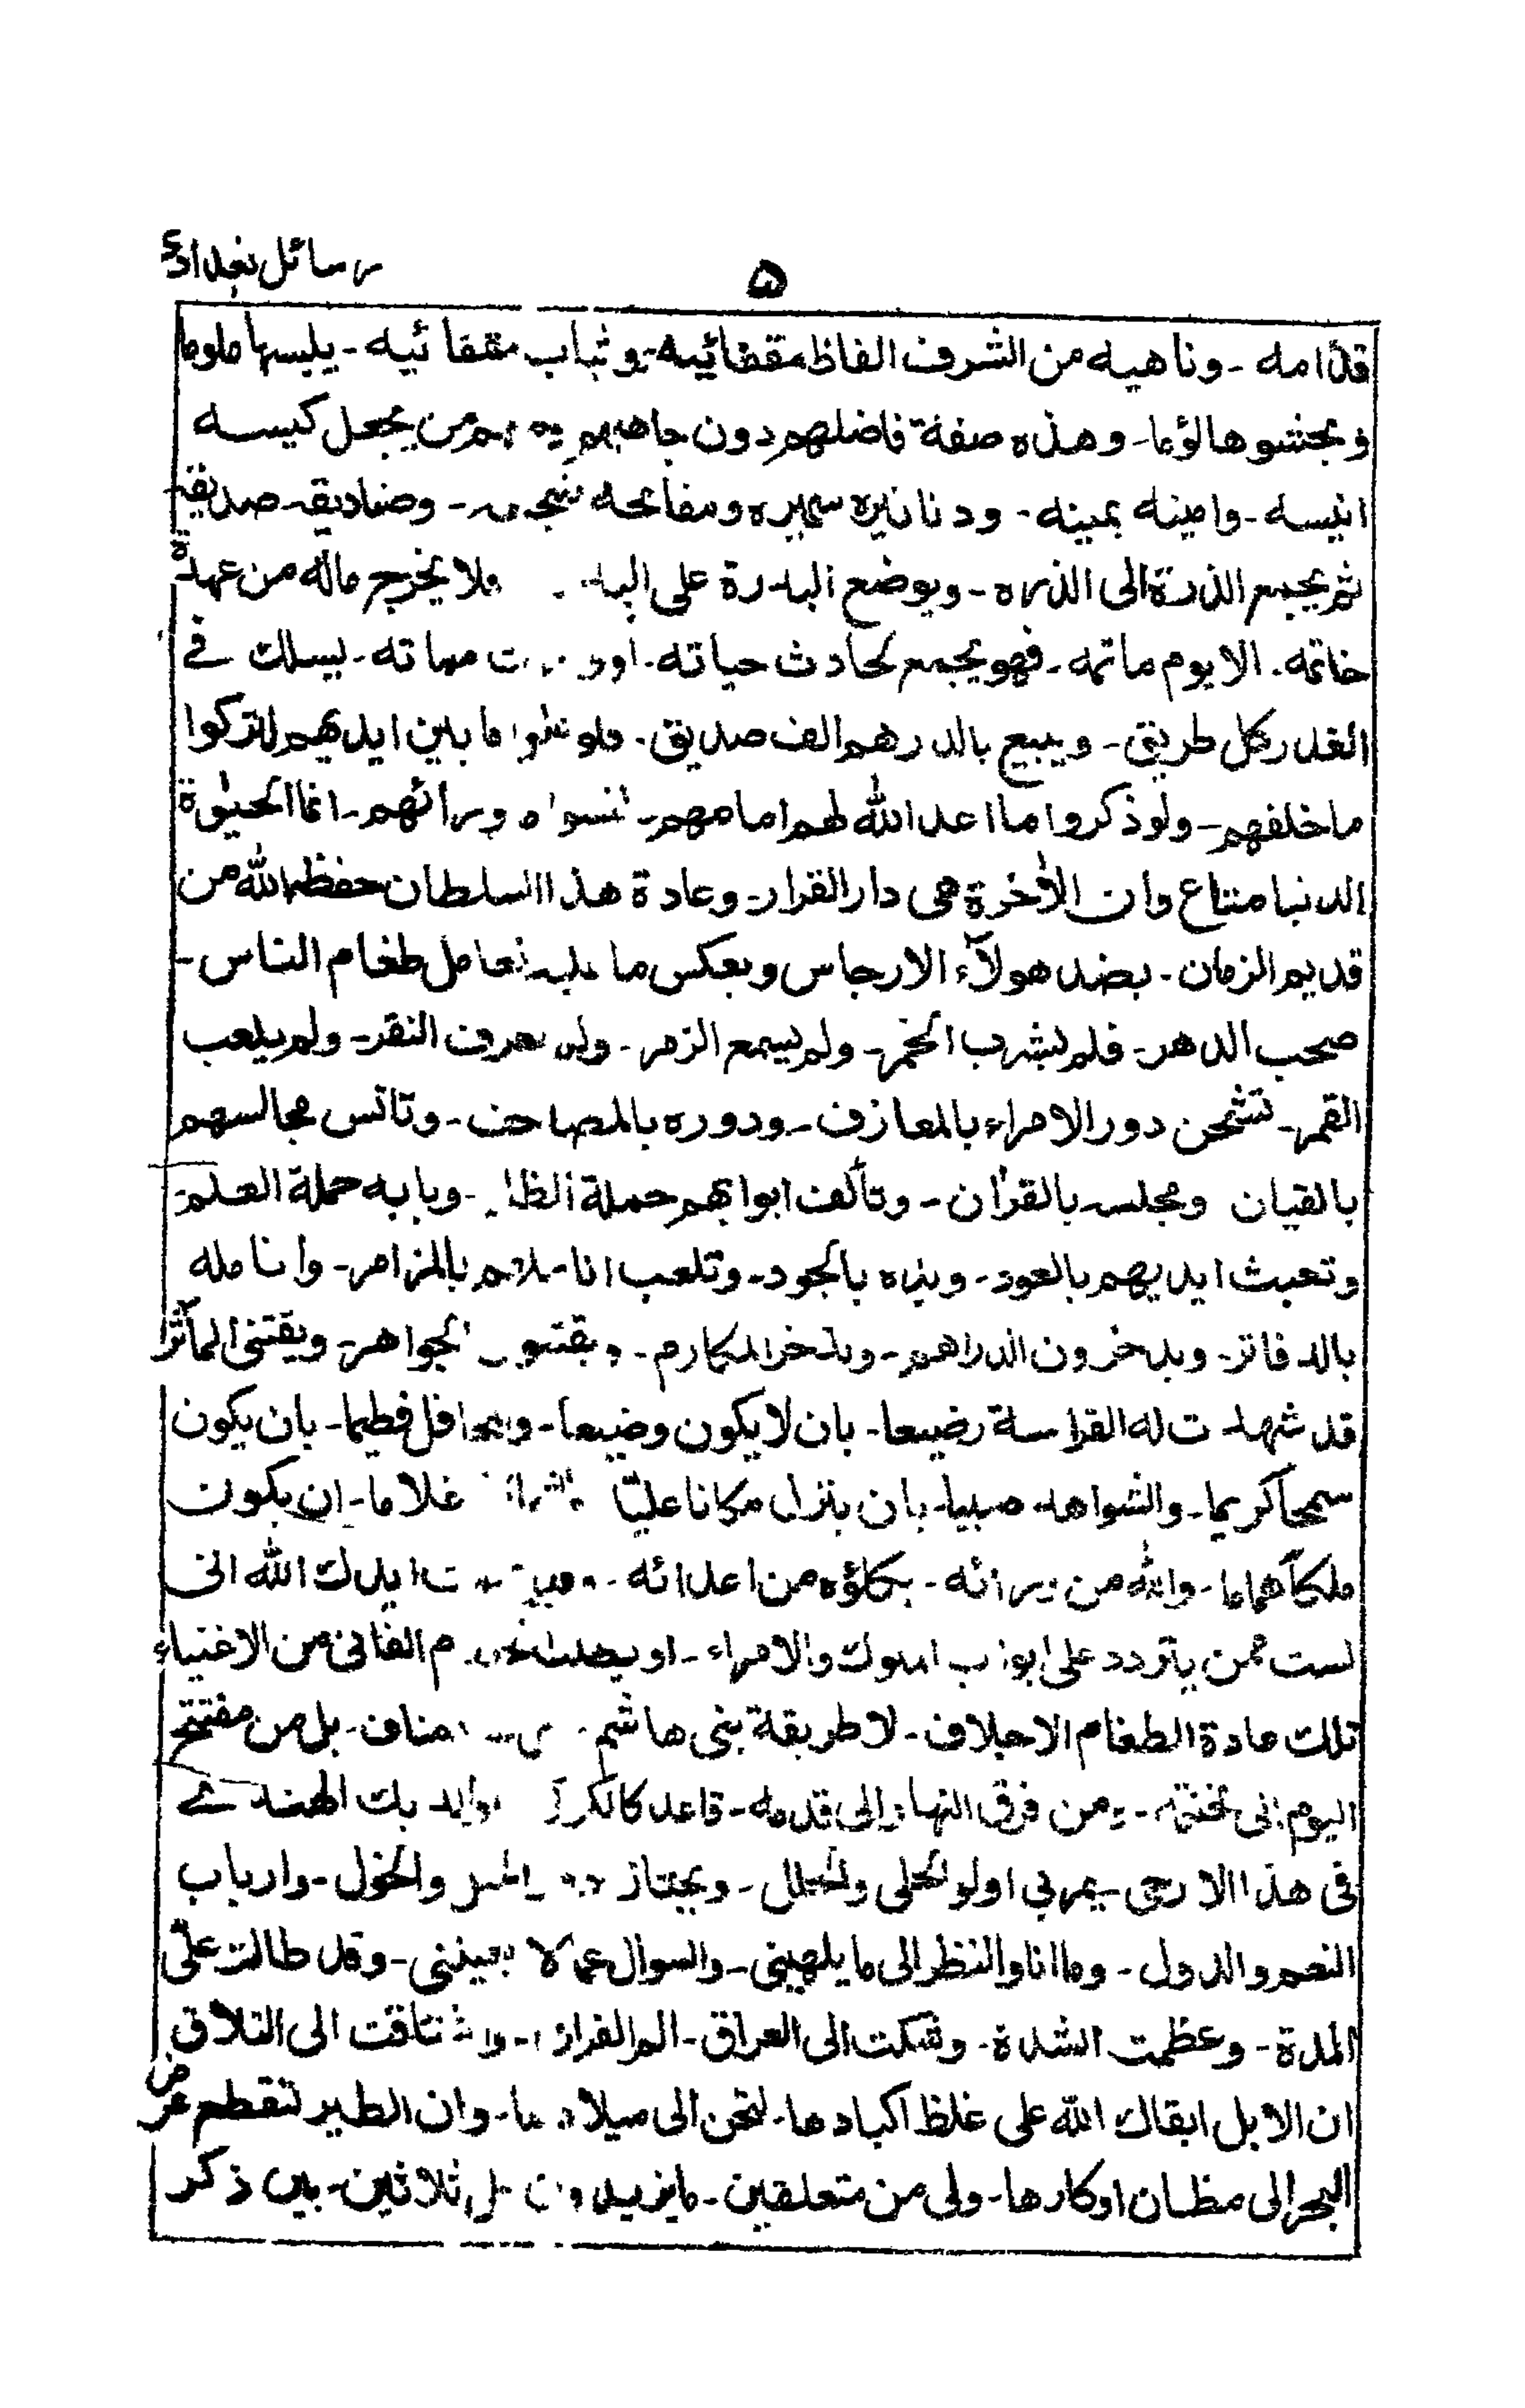 رسائل بغدادی
۵
قدامه - وناهيه من الشرف الفاظ مقضائيه - وثياب مققائيه - يلبسها ملوما
ويحشوها لؤما - وهذه صفة فاضلهم دون جاهلهم من يجعل كيسه
انيسه - وامينه يمينه - ودنانيره سميره ومفاتحه - وصناديقه صديقه
ثم يجمع الذرة الى الذره - ويوضع البدرة على ولا يخرج ماله من عهدة
خاتمه - الا يوم ماتمه - فهو يجمع لحادث حياته - او مماته - يسلك فے
الغدر كل طريق - ويبيع بالدرهم الف صديق - ما بين ايديهم لتركوا
ما خلفهم - ولو ذكروا ما اعد الله لهم امامهم - ورائهم - انما الحيوة
الدنيا متاع وان الأخرة هى دار القرار - وعادة هذا السلطان حفظه الله من
قديم الزمان - بضد هولآء الارجاس وبعكس ما عليه تعامل طغام الناس -
صحب الدهر - فلم يشرب الخمر - ولم يسمع الزمر - ولم يعرف النقر - ولم يلعب
القمر - تشحن دور الامراء بالمعازف - ودوره بالمصاحف - وتانس مجالسهم
بالقيان ومجلسه بالقرأن - وتألف ابوابهم حملة - وبابه حملة العلم -
وتعبث ايديهم بالعود - ويده بالجود - وتلعب اناملهم بالمزامر - وانامله
بالدفاتر - ويدخرون الدراهم - ويدخر المكارم - ويقتنون الجواهر - ويقتنى المآثر
قد شهدت له القراسة رضيعا - بان لا يكون وضيعا - والمحافل فطيما - بان يكون
سمحا كريما - والشواهد صبيا - بان ينزل مكانا عليّا غلاما - ان يكون
ملكاً هماما - والله من ورائه - يكلؤه من اعدائه - ايدك الله انى
لست ممن يتردد على ابواب الملوك والامراء - او يطلب الفانى من الاغنياء
تلك عادة الطغام الاجلاف - لا طريقة بنى هاشم مناف - بل من مفتتح
اليوم الى مختتمه - ومن فرق النهار الى قدمه - قاعد كالكركى والديك الهندے
فى هذا الارجى - يمر بى اولو الحلى والحلل - ويجتاز والخول - وارباب
النعم والدول - وما انا والنظر الى ما يلهينى - والسوال عما لا يعيننى - وقد طالت علىّ
المدة - وعظمت الشدة - وشكت الى العراق - الم الفراق - واشتاقت الى التلاق
ان الابل ابقاك الله على غلظ اكبادها - لتحن الى ميلادها - وان الطير لتقطع عرض
البحر الى مظان اوكارها - ولى من متعلقين - ما يزيدون على ثلاثين - بين ذكر